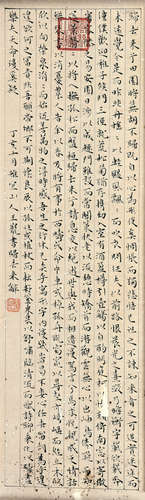 歸去來兮田園將蕪胡不歸既自以心為形役奚惆悵而獨悲悟已往之不諫知來者之可追實迷途其
未遠覺今是而昨非舟遙遙以輕颺風飄飄而吹衣問征夫以前路恨晨光之熹微乃瞻衡宇載欣載奔
僮僕歡迎稚子候門三徑就荒松菊猶存攜幼入室有酒盈樽引壺觴以自酌眄庭柯以怡顏倚南窗以寄傲
審容膝之易安園日涉以成趣門雖設而常關策扶老以流憩時矯首而遐觀雲無心以出岫鳥倦飛而知還
景翳翳以將入撫孤松而盤桓歸去來兮請息交以絕遊世與我而相違復駕言兮焉求悅親戚之情話樂琴書
以消憂農人告余以春及將有事于西疇或命巾車或棹孤舟既窈窕以尋壑亦崎嶇而經丘木欣欣以
向榮泉涓涓而始流善萬物之得時感吾生之行休已矣乎寓形宇內復幾時曷不委心任去留胡為
遑遑欲何之富貴非吾願帝鄉不可期懷良辰以孤往或植杖而耘耔登東皋以舒嘯臨清流而賦詩聊乘化以歸盡
樂夫天命復奚疑
丁亥八月雅宜山人王寵書歸去來辭